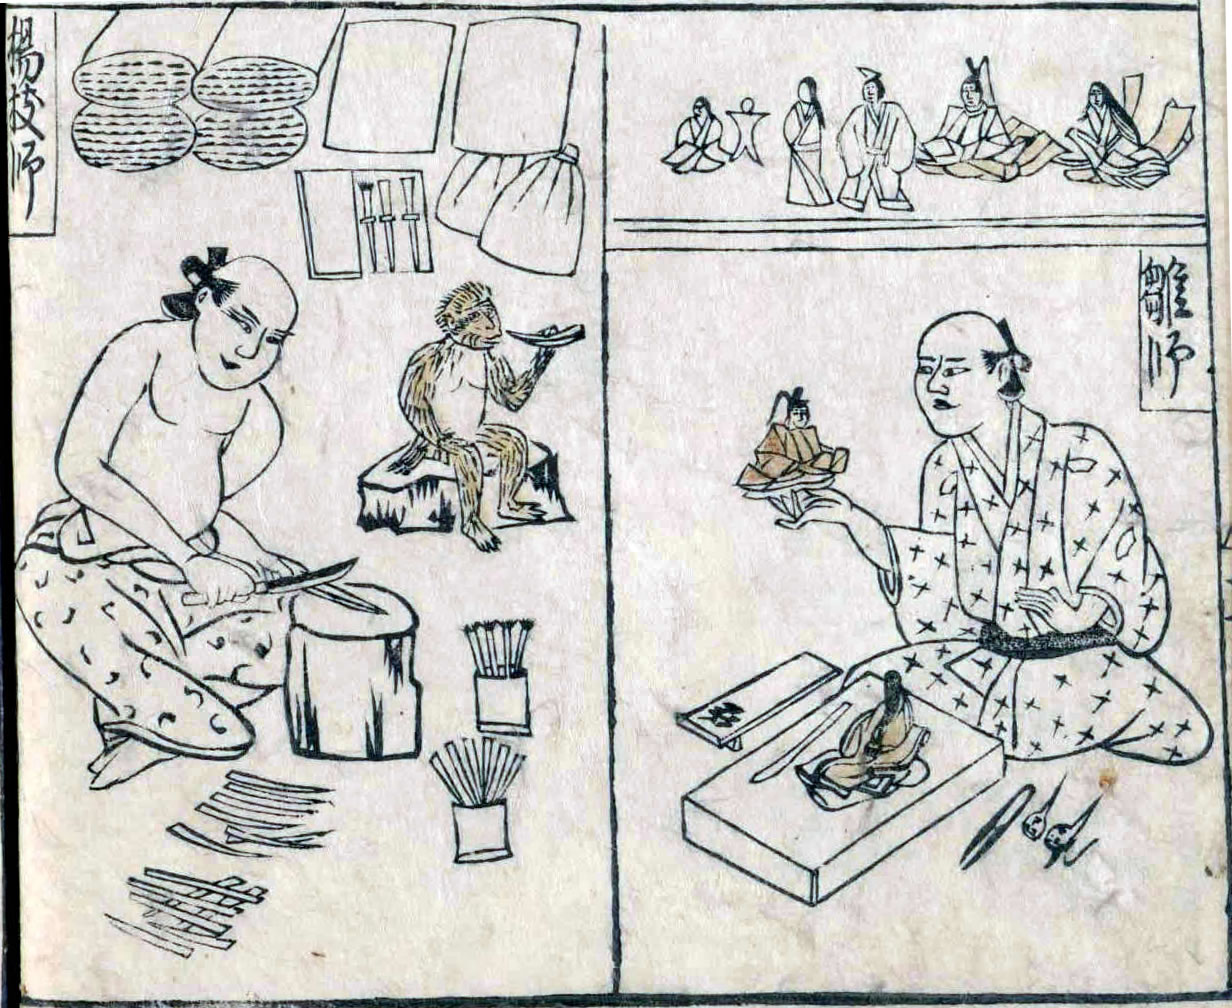 雛師
楊枝師